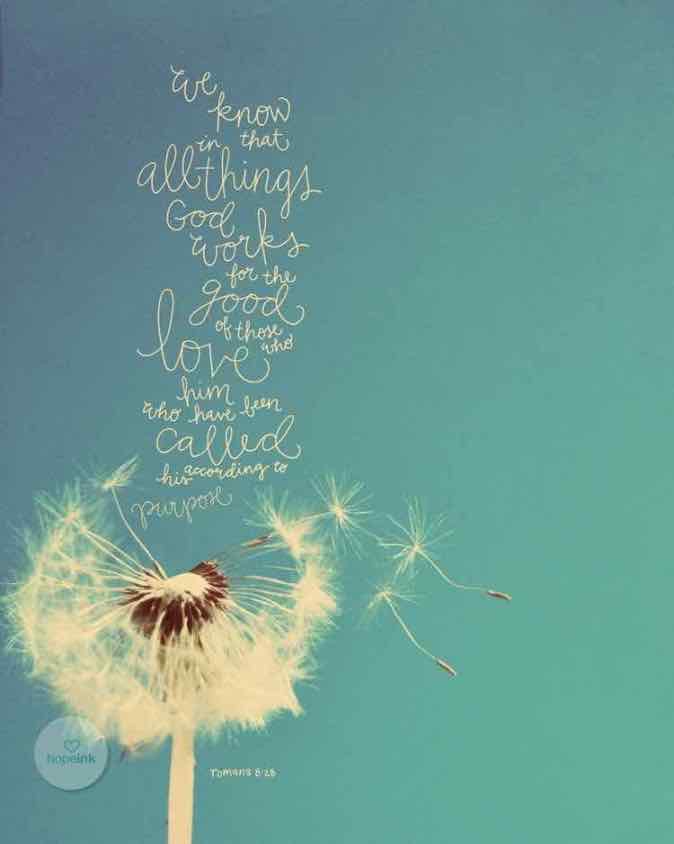 we
know
in that
all things
God
works
for the
good
of those
who
love
him
who have been
called
according to
his
purpose
romans 8:28
hopeink